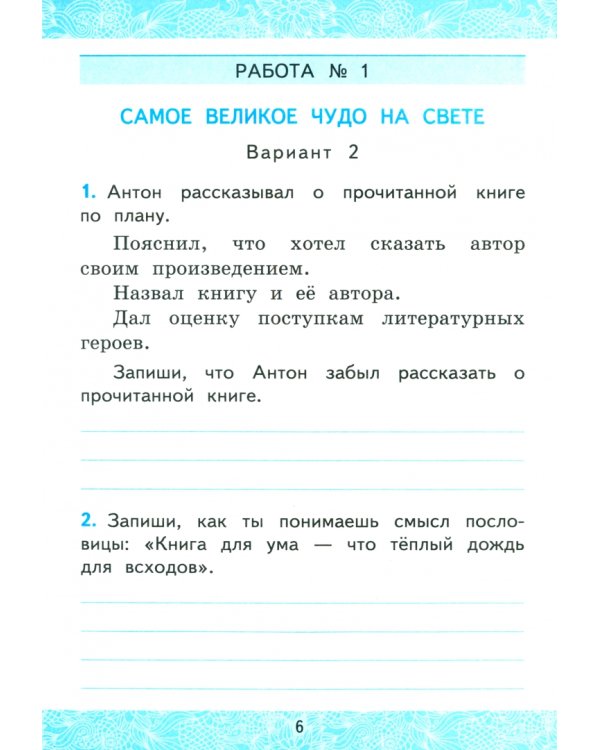 РАБОТА № 1
САМОЕ ВЕЛИКОЕ ЧУДО НА СВЕТЕ
Вариант 2
1. Антон рассказывал о прочитанной книге
по плану.
Пояснил, что хотел сказать автор
своим произведением.
Назвал книгу и её автора.
Дал оценку поступкам литературных
героев.
Запиши, что Антон забыл рассказать о
прочитанной книге.
2. Запиши, как ты понимаешь смысл посло-
вицы: «Книга для ума — что тёплый дождь
для всходов».
6